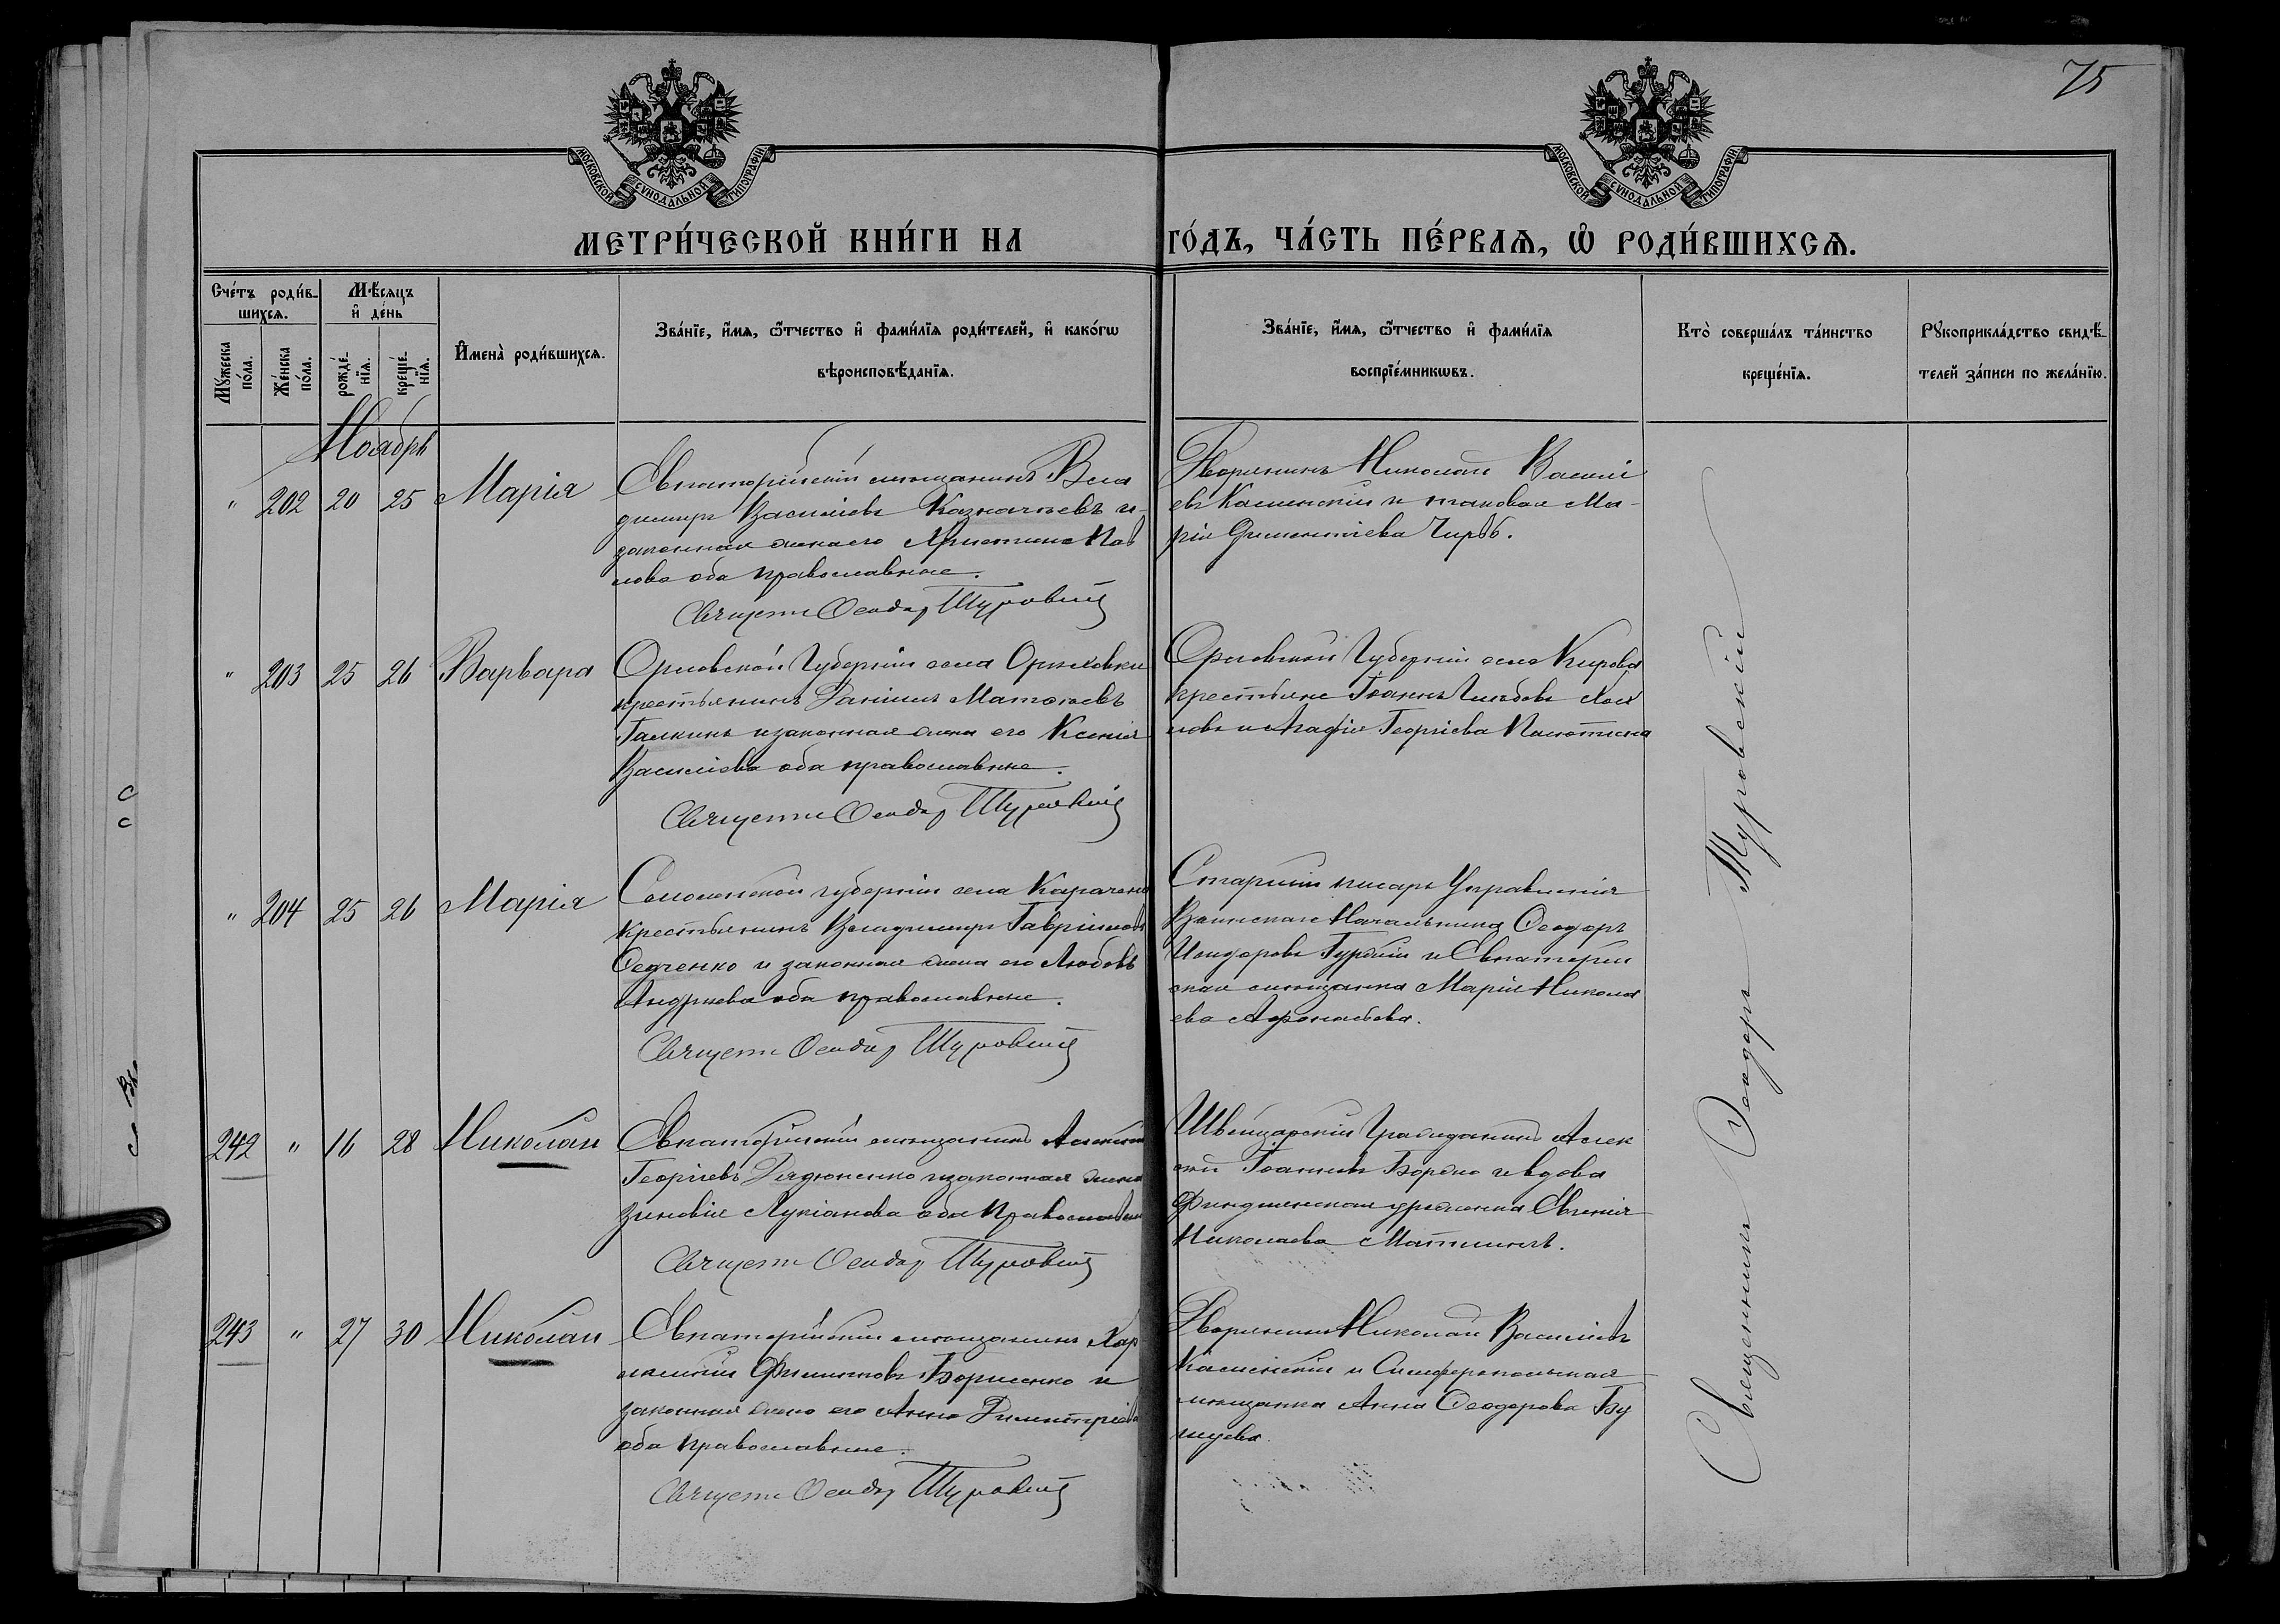 75
МОСКОВСКОЙ СѴНОДАЛЬНОЙ ТИПОГРАФІИ.
МОСКОВСКОЙ СѴНОДАЛЬНОЙ ТИПОГРАФІИ.
МЕТРИ́ЧЕСКОЙ КНИ́ГИ НА
ГО́ДЪ, ЧА́СТЬ ПЕ́РВАѦ, Ѽ РОДИ́ВШИХСѦ.
Сче́тъ роди́в-
шихсѧ.
Мѣ́сѧцъ
и҆ де́нь
Мꙋ́жеска
по́ла.
Же́нска
по́ла.
рожде́-
нїѧ.
креще́-
нїѧ.
И҆мена̀ роди́вшихсѧ.
Зва́нїе, и҆́мѧ, ѻ҆́тчество и҆ фами́лїѧ роди́телей, и҆ како́гѡ
вѣроисповѣ́данїѧ.
Зва́нїе, и҆́мѧ, ѻ҆́тчество и҆ фами́лїѧ
воспрїе́мникѡвъ.
Кто̀ соверша́лъ та́инство
креще́нїѧ.
Рꙋкоприкла́дство свидѣ́-
телей за́писи по жела́нїю.
Ноябрь
" 202 20 25 Марія
Евпаторійскій мѣщанинъ Вла
димиръ Василіевъ Казначеевъ и
законная жена его Христина Пав
лова оба православные.
Священ Ѳеодор Туровскій
Дворянинъ Николай Василі
евъ Каменскій и таковая Ма-
рія Дементіева
" 203 25 26 Варвара
Орловской Губерніи села
крестьянинъ Даніилъ Матѳеевъ
Галкинъ и законная жена его Ксенія
Василіева оба православные.
Священ Ѳеодор Туровскій
Орловской Губерніи села Кирова
крестьяне Іоаннъ Глѣбовъ
и Агафія Георгіева
" 204 25 26 Марія
Смоленской губерніи села
крестьянинъ Владимиръ Гавріиловъ
Федченко и законная жена его Любовь
Андреева оба православные.
Священ Ѳеодор Туровскій
Старшій писарь Управленія
Воинскаго Начальника Ѳеодоръ
и Евпаторій
ская мѣщанка Марія Никола
ева Афанасьева.
242 " 16 28 Николай
Евпаторійскій мѣщанинъ Алексѣй
Георгіевъ и законная жена
Зиновія Лукіанова оба Православные
Священ Ѳеодор Туровскій
Швейцарскій Гражданинъ Алек
сѣй Іоанновъ и вдова
Финдляндская уроженка Евгенія
Николаева
243 " 27 30 Николай
Евпаторійскій мѣщанинъ Хар
лампій Филиповъ Борисенко и
законная жена его Анна Димитріева
оба православные.
Священ Ѳеодор Туровскій
Дворянинъ Николай Василіевъ
Каменскій и Симферопольская
мѣщанка Анна Ѳеодорова
Священникъ Ѳеодоръ Туровскій